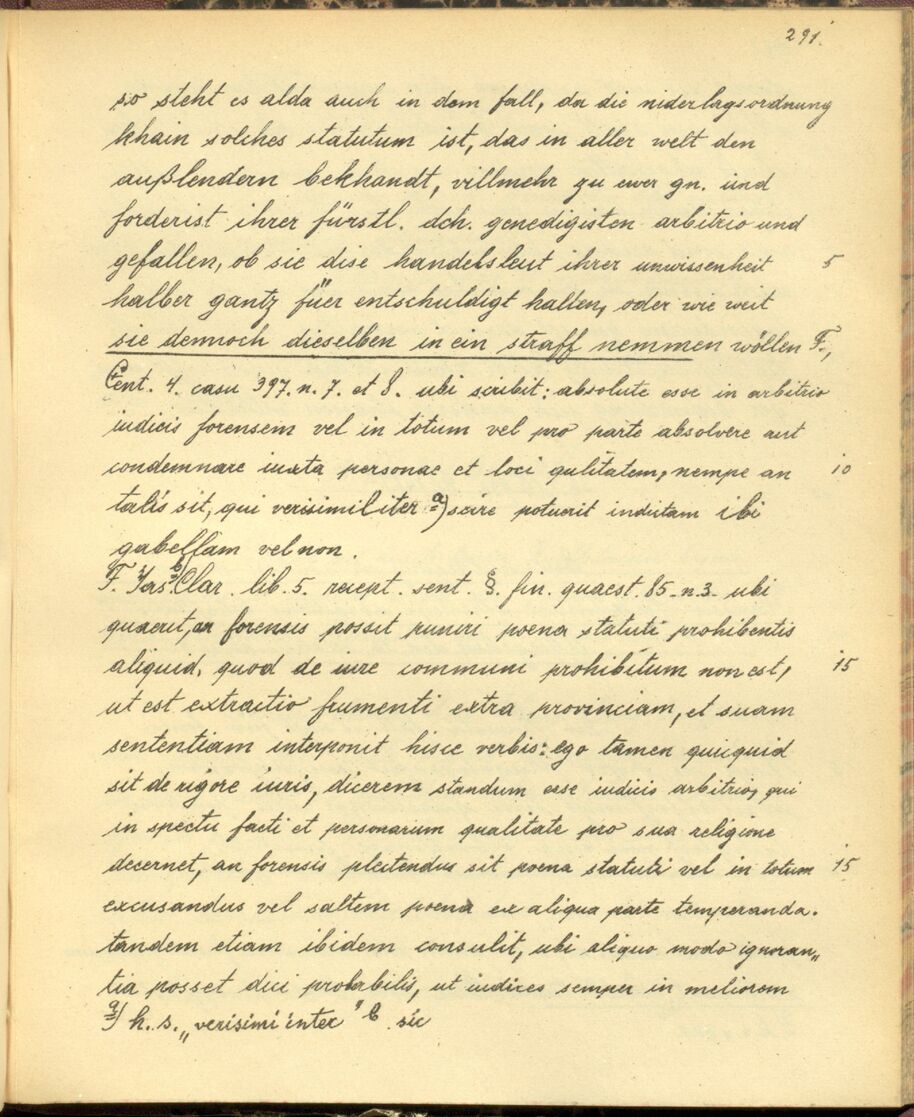 291.
so steht es alda auch in dem fall, da die niderlagsordnung
khain solches statutum ist, das in aller welt den
außlendern bekhandt, villmehr zu ewer gn. und
forderist ihrer fürstl. dch. genedigisten arbitrio und
gefallen, ob sie dise handelsleut ihrer unwissenheit 5
halber gantz füer entschuldigt halten, oder wie weit
sie dennoch dieselben in ein straff nemmen wöllen F.,
Cent. 4. casu 397. n. 7. et 8. ubi scribit: absolute esse in arbitrio
iudicis forensem vel in totum vel pro parte absolvere aut
condemnare iuxta personae et loci qulitatem, nempe an 10
talis sit, qui verisimiliter a) scire potuerit indictam ibi
gabellam vel non.
F. Jas. b) Clar. lib. 5. recept. sent. §. fin. quaest. 85. n. 3. ubi
quaerit, an forensis possit puniri poena statuti prohibentis
aliquid, quod de iure communi prohibitum non est, 15
ut est extractio frumenti extra provinciam, et suam
sententiam interponit hisce verbis: ego tamen quicquid
sit de rigore iuris, dicerem standum esse iudicis arbitrio, qui
in spectu facti et personarum qualitate pro sua religione
decernet, an forensis plectendus sit poena statuti vel in totum 15
excusandus vel saltem poena ex aliqua parte temperanda.
tandem etiam ibidem consulit, ubi aliquo modo ignoran„
tia posset dici probabilis, ut iudices semper in meliorem
a) h. s. „verisimi inter" b sic